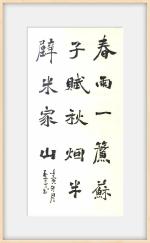 春雨一簾蘇
子賦秋烟半
壁米家山